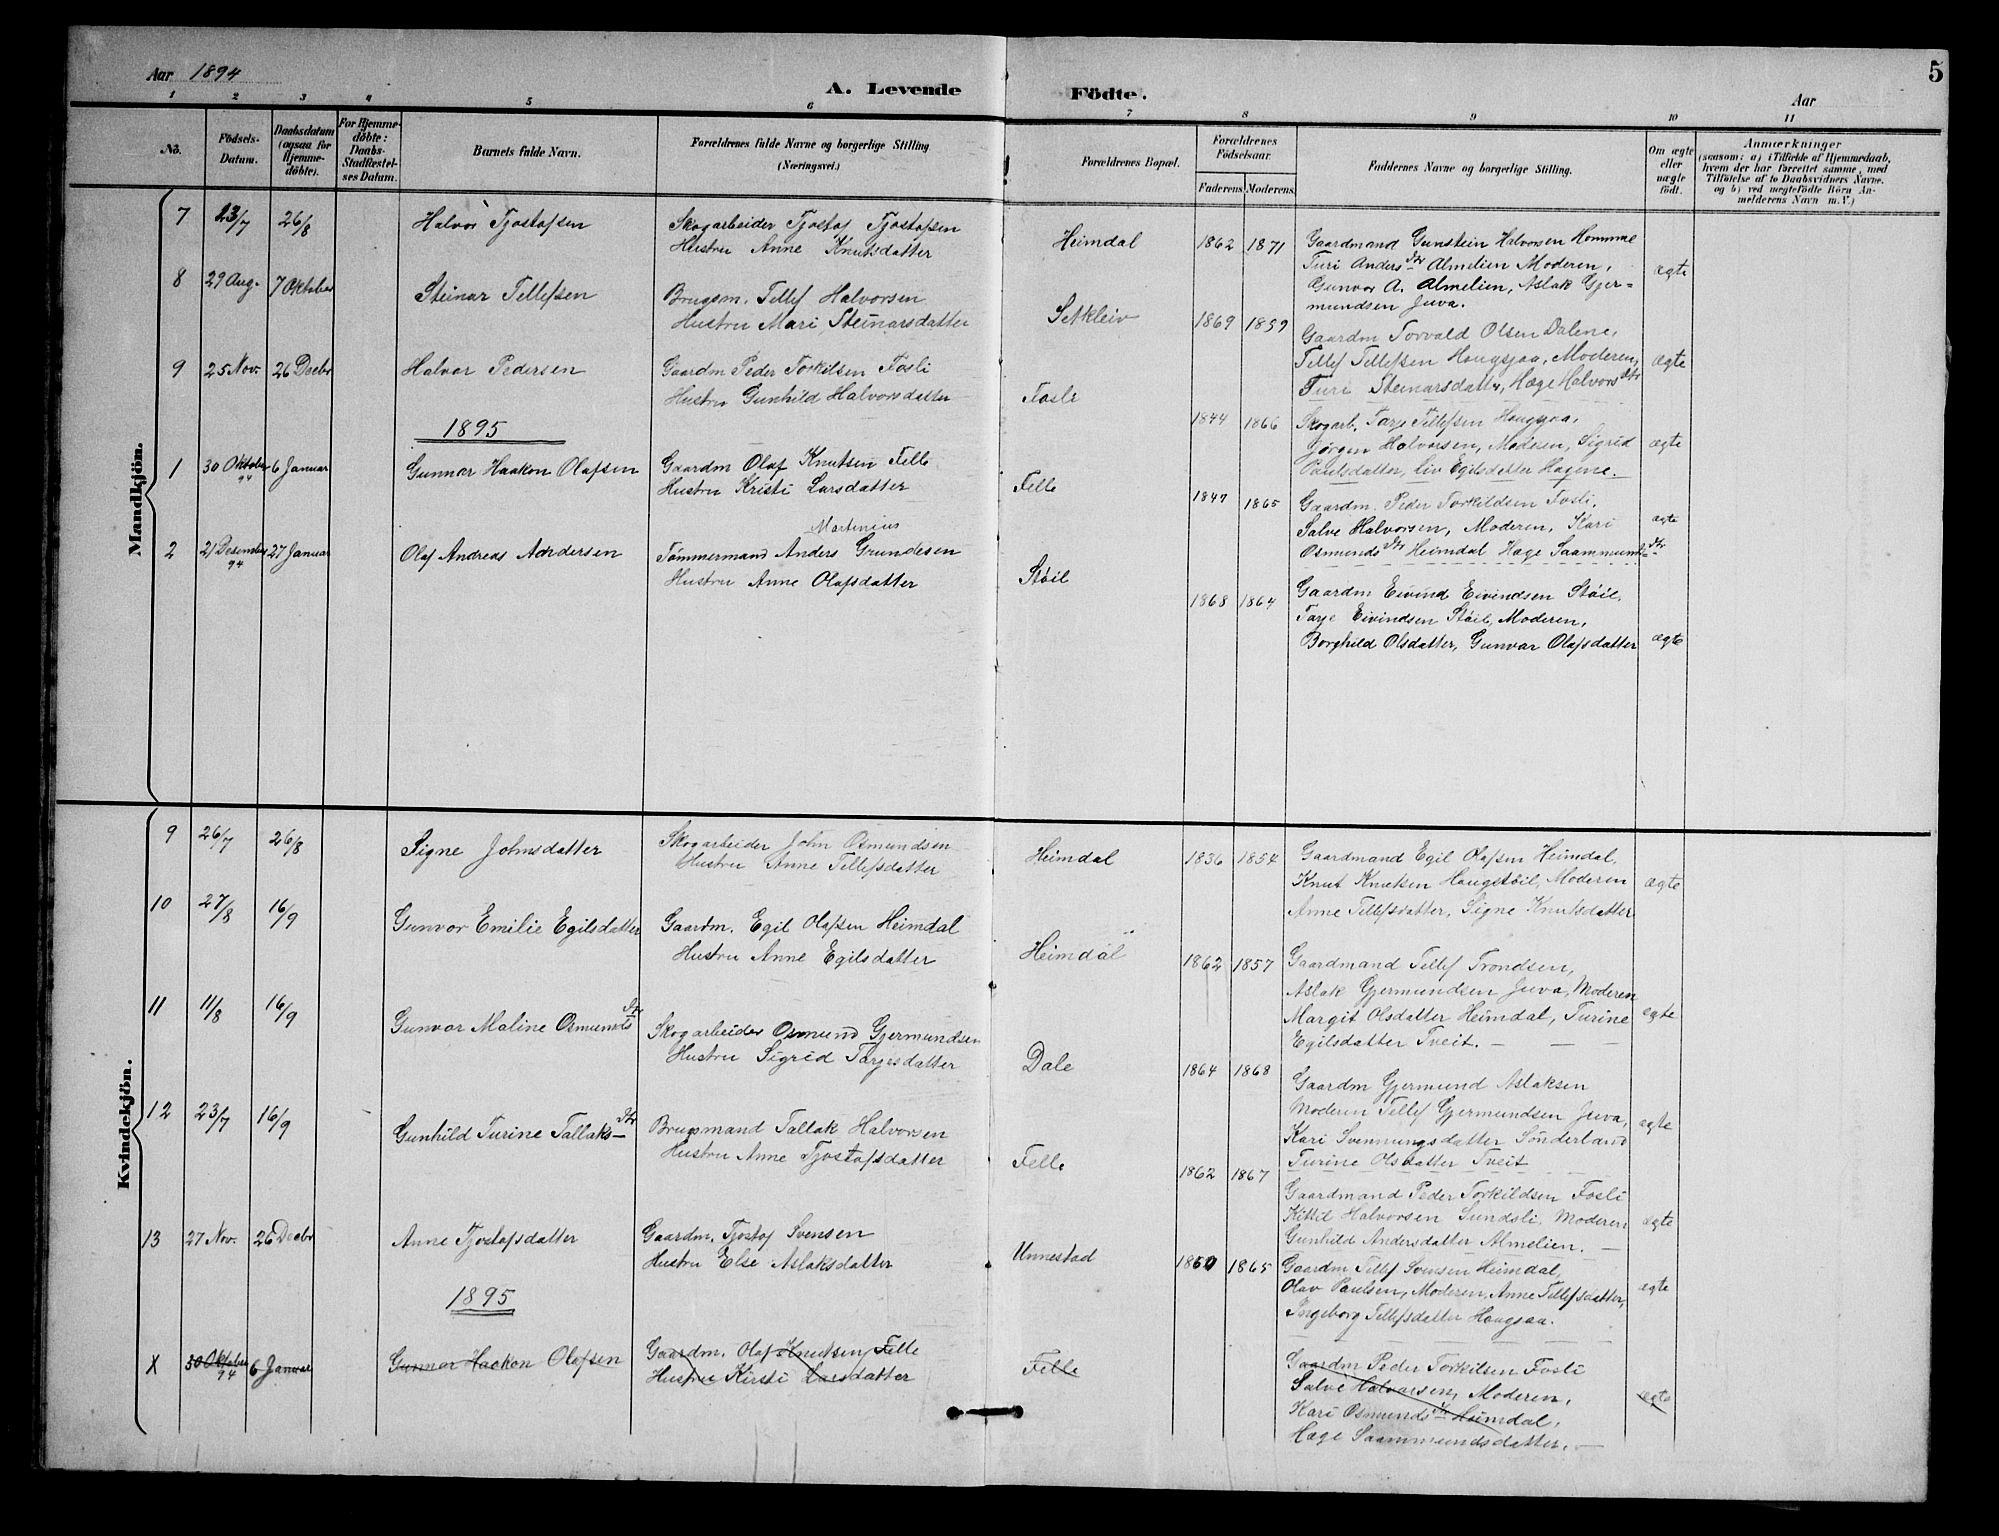 5
Aar 1894
A. Levende Födte.
Aar
1 2 3 4 5 6 7 8 9 10 11
No.
Födsels-
Datum.
Daabsdatum
(ogsaa for
Hjemme-
döbte).
For Hjemme-
döbte:
Daabs-
Stadfæstel-
ses Datum.
Barnets fulde Navn.
Forældrenes fulde Navne og borgerlige Stilling
(Næringsvei.)
Forældrenes Bopæl.
Forældrenes
Födselsaar.
Faderens. Moderens.
Faddernes Navne og borgerlige Stilling.
Om ægte
eller
uægte
födt.
Anmærkninger
(saasom: a) i Tilfælde af Hjemmedaab,
hvem der har forrettet samme, med
Tilföielse af to Daabsvidners Navne.
og b) ved uegtefödte Börn An-
melderens Navn m.V.)
Mandkjön.
7 23/7 26/8 Halvor Tjostofsen
Skogarbeider Tjostof Tjostofsen
Hustru Anne Knutsdatter
Heimdal 1862 1871
Gaardmand Gunstein Halvorsen Homme
Turi Anders Dtr Almelien Moderen,
Gunvor A. Almelien, Aslak Gjer-
mundsen Juva.
ægte
8 29 Aug. 7 Oktober Steinar Tellefsen
Brugsm. Tellef Halvorsen
Hustru Mari Steinarsdatter
Setkleiv 1869 1859
Gaardm Torvald Olsen Dalene,
Tellef Tellefsen Hougsjaa, Moderen,
Turi Steinarsdatter, Hæge Halvorsdtr
ægte
9 25 Nov. 26 Decbr Halvor Pedersen
Gaardm Peder Torkilsen Fosli
Hustru Gunhild Halvorsdatter
Fosli 1844 1866
Skogarb. Tarje Tellefsen Hougsjaa,
Jørgen Halvorsen, Moderen, Sigrid
Paulsdatter, Liv Egilsdatter Hagene.
ægte
1895
1 30 Oktober 94 6 Januar Gunnar Haakon Olafsen
Gaardm Olaf Knutsen Felle
Hustru Kristi Larsdatter
Felle 1847 1865
Gaardm. Peder Torkildsen Fosli,
Salve Halvorsen, Moderen, Kari
Osmunds Dtr Heimdal Hæge Saammunds Dtr
ægte
2 21 Desember 94 27 Januar Olaf Andreas Andersen
Martinius
Tømmermand Anders Grundesen
Hustru Anne Olafsdatter
Støil 1868 1864
Gaardm Eivind Eivindsen Støil,
Tarje Eivindsen Støil, Moderen,
Borghild Olsdatter, Gunvor Olafsdatter
ægte
Kvindekjön.
9 26/7 26/8 Signe Johnsdatter
Skogarbeider John Osmundsen
Hustru Anne Tellefsdatter
Heimdal 1836 1854
Gaardmand Egil Olafsen Heimdal,
Knut Knutsen Haugstöil, Moderen
Anne Tellefsdatter, Signe Knutsdatter
ægte
10 27/8 16/9 Gunvor Emilie Egilsdatter
Gaardm. Egil Olafsen Heimdal
Hustru Anne Egilsdatter
Heimdal 1862 1857
Gaardmand Tellef Trondsen,
Aslak Gjermundsen Juva, Moderen
Margit Olsdatter Heimdal, Turine
Egilsdatter Tveit.
ægte
11 11/8 16/9 Gunvor Maline Osmunds Dtr
Skogarbeider Osmund Gjermundsen
Hustru Sigrid Tarjesdatter
Dale 1864 1868
Gaardm Gjermund Aslaksen
Moderen Tellef Gjermundsen Juva,
Kari Svenningsdatter Sönderland
Turine Olsdatter Tveit
ægte
12 23/7 16/9 Gunhild Turine Tallaks Dtr
Brugsmand Tallak Halvorsen
Hustru Anne Tjostofsdatter
Felle 1862 1867
Gaardmand Peder Torkildsen Fosli
Kittil Halvorsen Sundsli, Moderen
Gunhild Andersdatter Almelien.
ægte
13 27 Nov. 26 Decbr Anne Tjostofsdatter
Gaardm. Tjostof Svensen
Hustru Else Aslaksdatter
Unnestad 1865
Gaardm Tellef Svensen Heimdal,
Olav Paulsen, Moderen, Anne Tellefsdatter,
Ingeborg Tellefsdatter Hougsaa.
ægte
1895
X 30 Oktober 94 6 Januar Gunnar Haakon Olafsen
Gaardm. Olaf Knutsen Felle
Hustru Kirsti Larsdatter
Felle
Gaardm Peder Torkilsen Fosli
Salve Halvorsen, Moderen,
Kari Osmunds Dtr Heimdal,
Hæge Saammundsdatter.
ægte